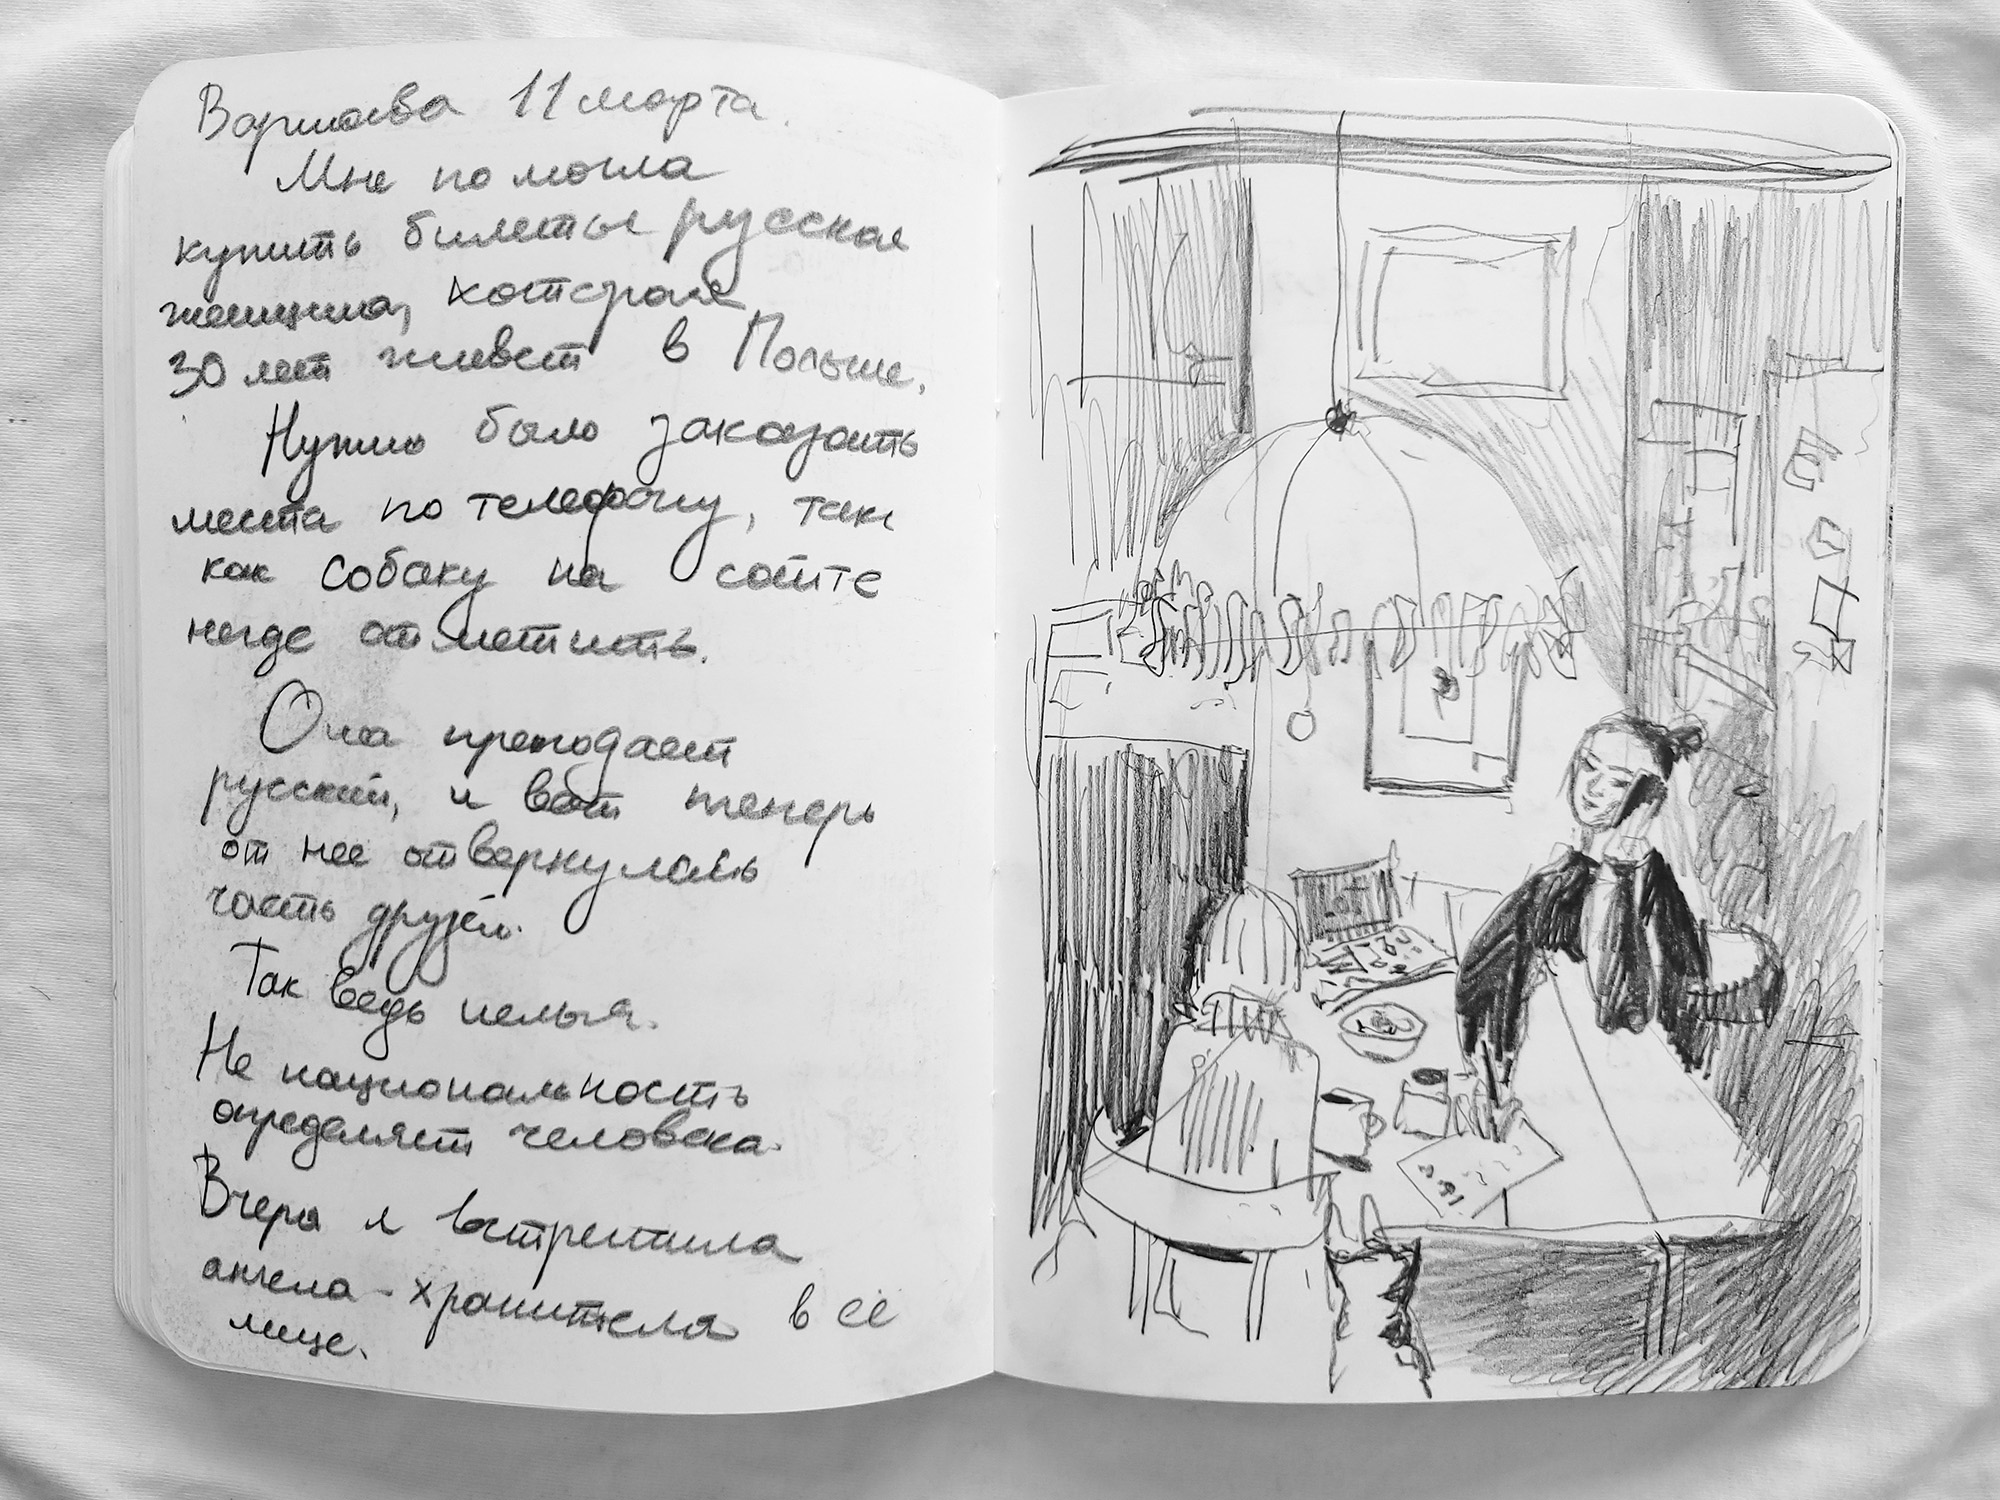 Варшава 11 марта.
Мне помогла
купить билеты русская
женщина, которая
30 лет живет в Польше.
Нужно было заказать
места по телефону, так
как собаку на сайте
негде отметить.
Она преподает
русский, и вот теперь
от нее отвернулась
часть друзей.
Так ведь нельзя.
Не национальность
определяет человека.
Вчера я встретила
ангела-хранителя в её
лице.